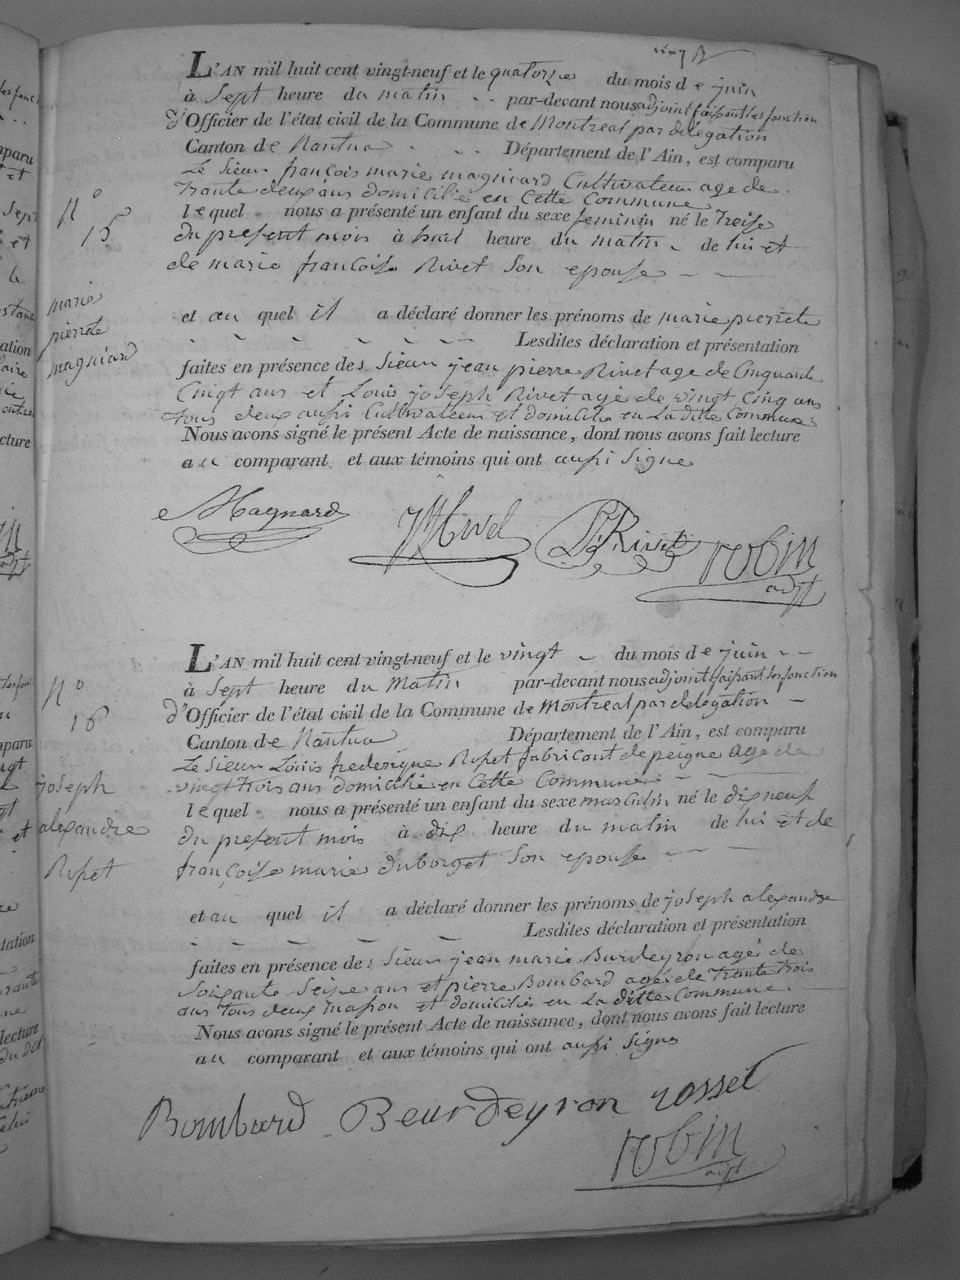 L'AN mil huit cent vingt-neuf et le quatorze du mois de juin
à Sept heure du matin par-devant nous adjoint faisant les fonction
d'Officier de l'état civil de la Commune de Montreal par délégation
Canton de Nantua Département de l'Ain, est comparu
Le Sieur françois marie magniard Cultivateur age de
Trante deux ans domicilié en Cette Commune
lequel nous a présenté un enfant du sexe feminin né le Treise
du present mois à huit heure du matin de lui et
de marie françoise Rivet Son epouse
N° 15
marie
pierrete
magniard
et au quel il a déclaré donner les prénoms de marie pierrete
Lesdites déclaration et présentation
faites en présence des Sieur jean pierre Rivet age de Cinquante
Cinq ans et Louis joseph Rivet agé de vingt Cinq ans
tous deux aussi Cultivateur et domicilié en La ditte Commune
Nous avons signé le présent Acte de naissance, dont nous avons fait lecture
au comparant et aux témoins qui ont aussi Signe
Magnard Rivet Rivet robin
adjt
L'AN mil huit cent vingt-neuf et le vingt du mois de juin
à Sept heure du Matin par-devant nous adjoint faisant les fonction
d'Officier de l'état civil de la Commune de Montreal par delegation
Canton de Nantua Département de l'Ain, est comparu
Le Sieur Louis frederique Rosset fabricant de peigne age de
vingt trois ans domicilié en Cette Commune
lequel nous a présenté un enfant du sexe masculin né le dix neuf
du present mois à dix heure du matin de lui et de
françoise marie duborget Son epouse
N° 16
joseph
alexandre
Rosset
et au quel il a déclaré donner les prénoms de joseph alexandre
Lesdites déclaration et présentation
faites en présence des Sieur jean marie Burdeyron agé de
Soixante Seise ans et pierre Bombard agé de Trente trois
ans tous deux masson et domicilié en La ditte Commune
Nous avons signé le présent Acte de naissance, dont nous avons fait lecture
au comparant et aux témoins qui ont aussi Signe
Bombard Beurdeyron rosset
robin
adjt